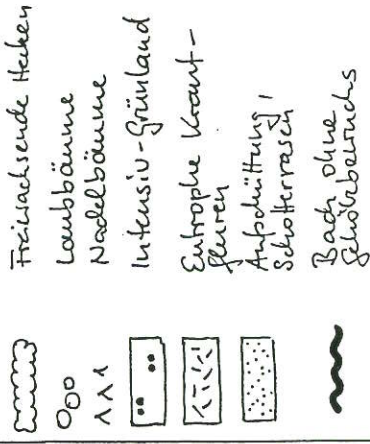 Freiwachsende Hecken
Laubbäume
Nadelbäume
Intensiv-Grünland
Eutrophe Kraut-
fluren
Aufschüttung,
Schotterrasen
Bach ohne
Gehölzbewuchs